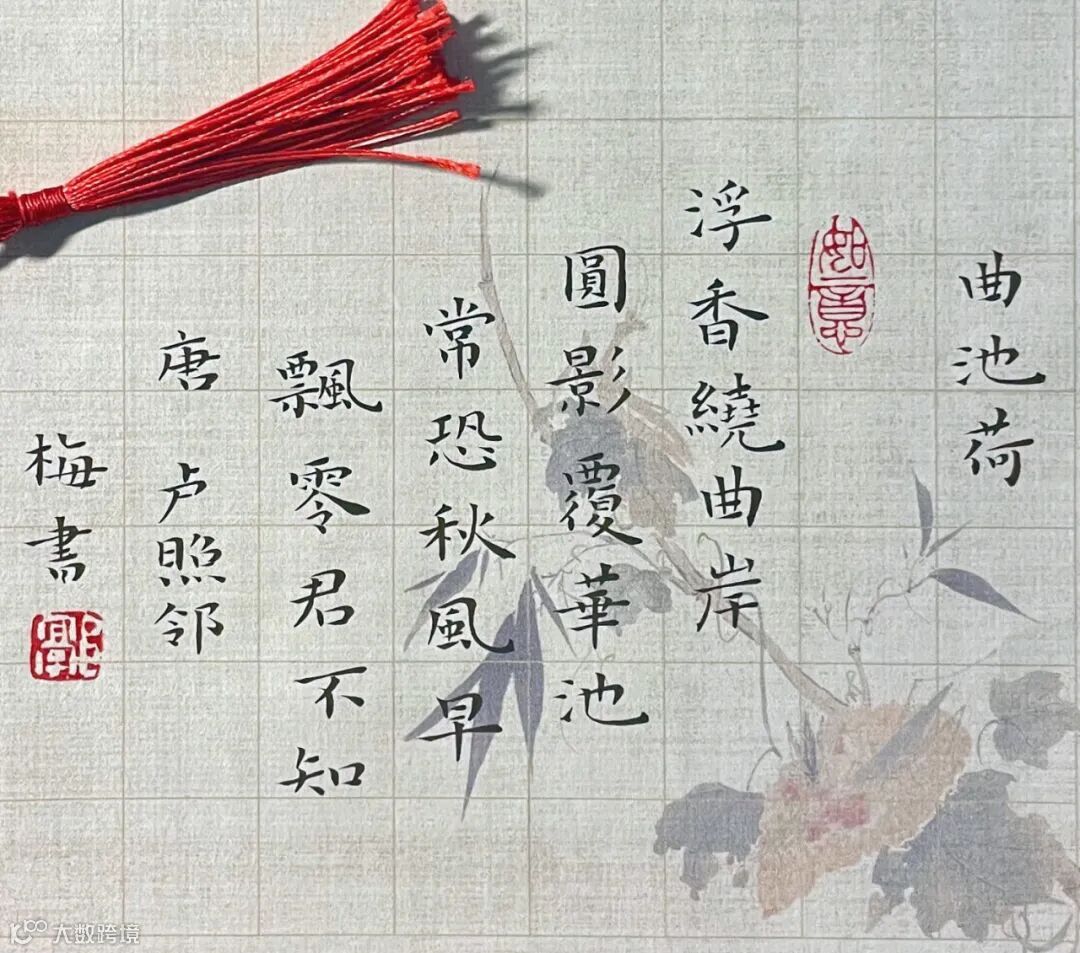 曲池荷
如意
浮香繞曲岸
圓影覆華池
常恐秋風早
飄零君不知
唐 卢照邻
梅書
大数跨境